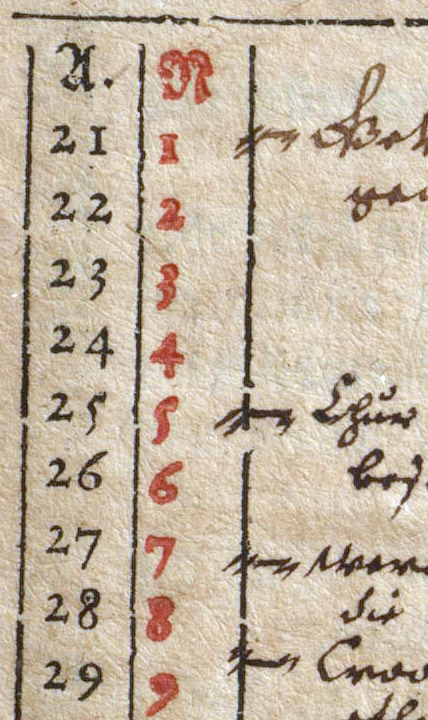 A. N
21 1
22 2
23 3
24 4
25 5 Chur
26 6
27 7
28 8 die
29 9